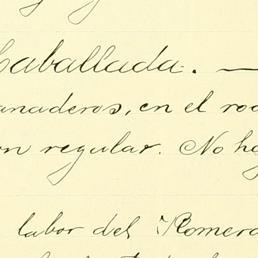 Caballada. —
anaderos, en el rod
on regular. No ha
labor del Romera